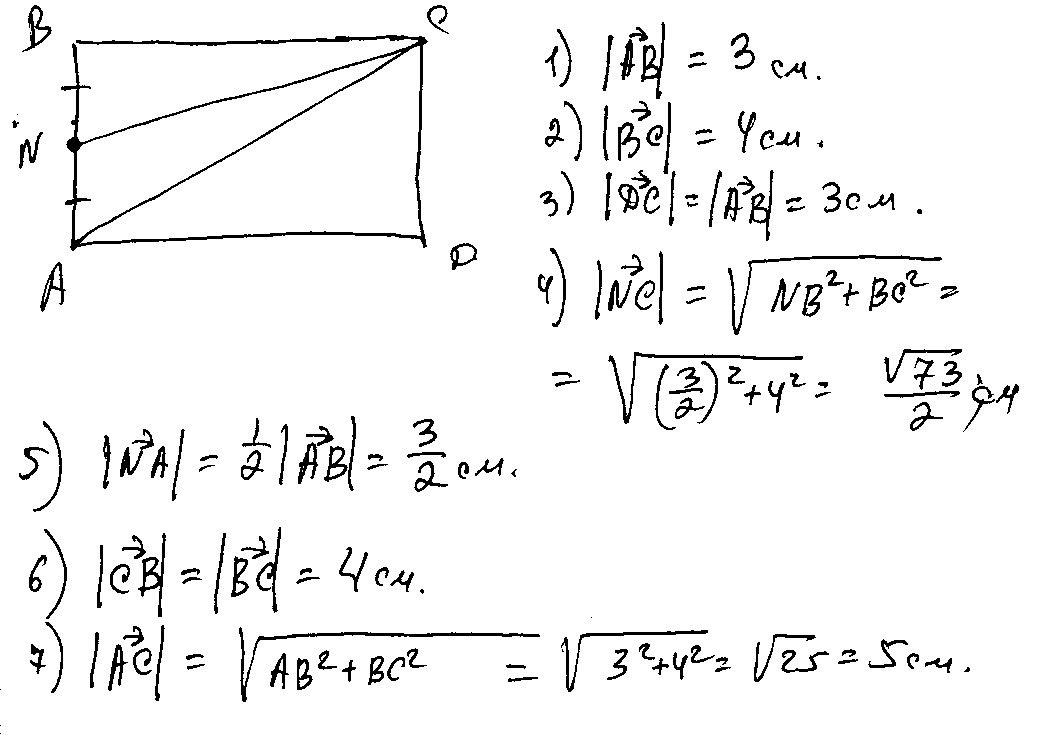 B
C
N
A
D
1) |A⃗B| = 3 см.
2) |B⃗C| = 4 см.
3) |D⃗C| = |A⃗B| = 3 см.
4) |N⃗C| = √(NB² + BC²) =
= √((3/2)² + 4²) = √73/2 см
5) |N⃗A| = 1/2 |A⃗B| = 3/2 см.
6) |C⃗B| = |B⃗C| = 4 см.
7) |A⃗C| = √(AB² + BC²) = √(3² + 4²) = √25 = 5 см.